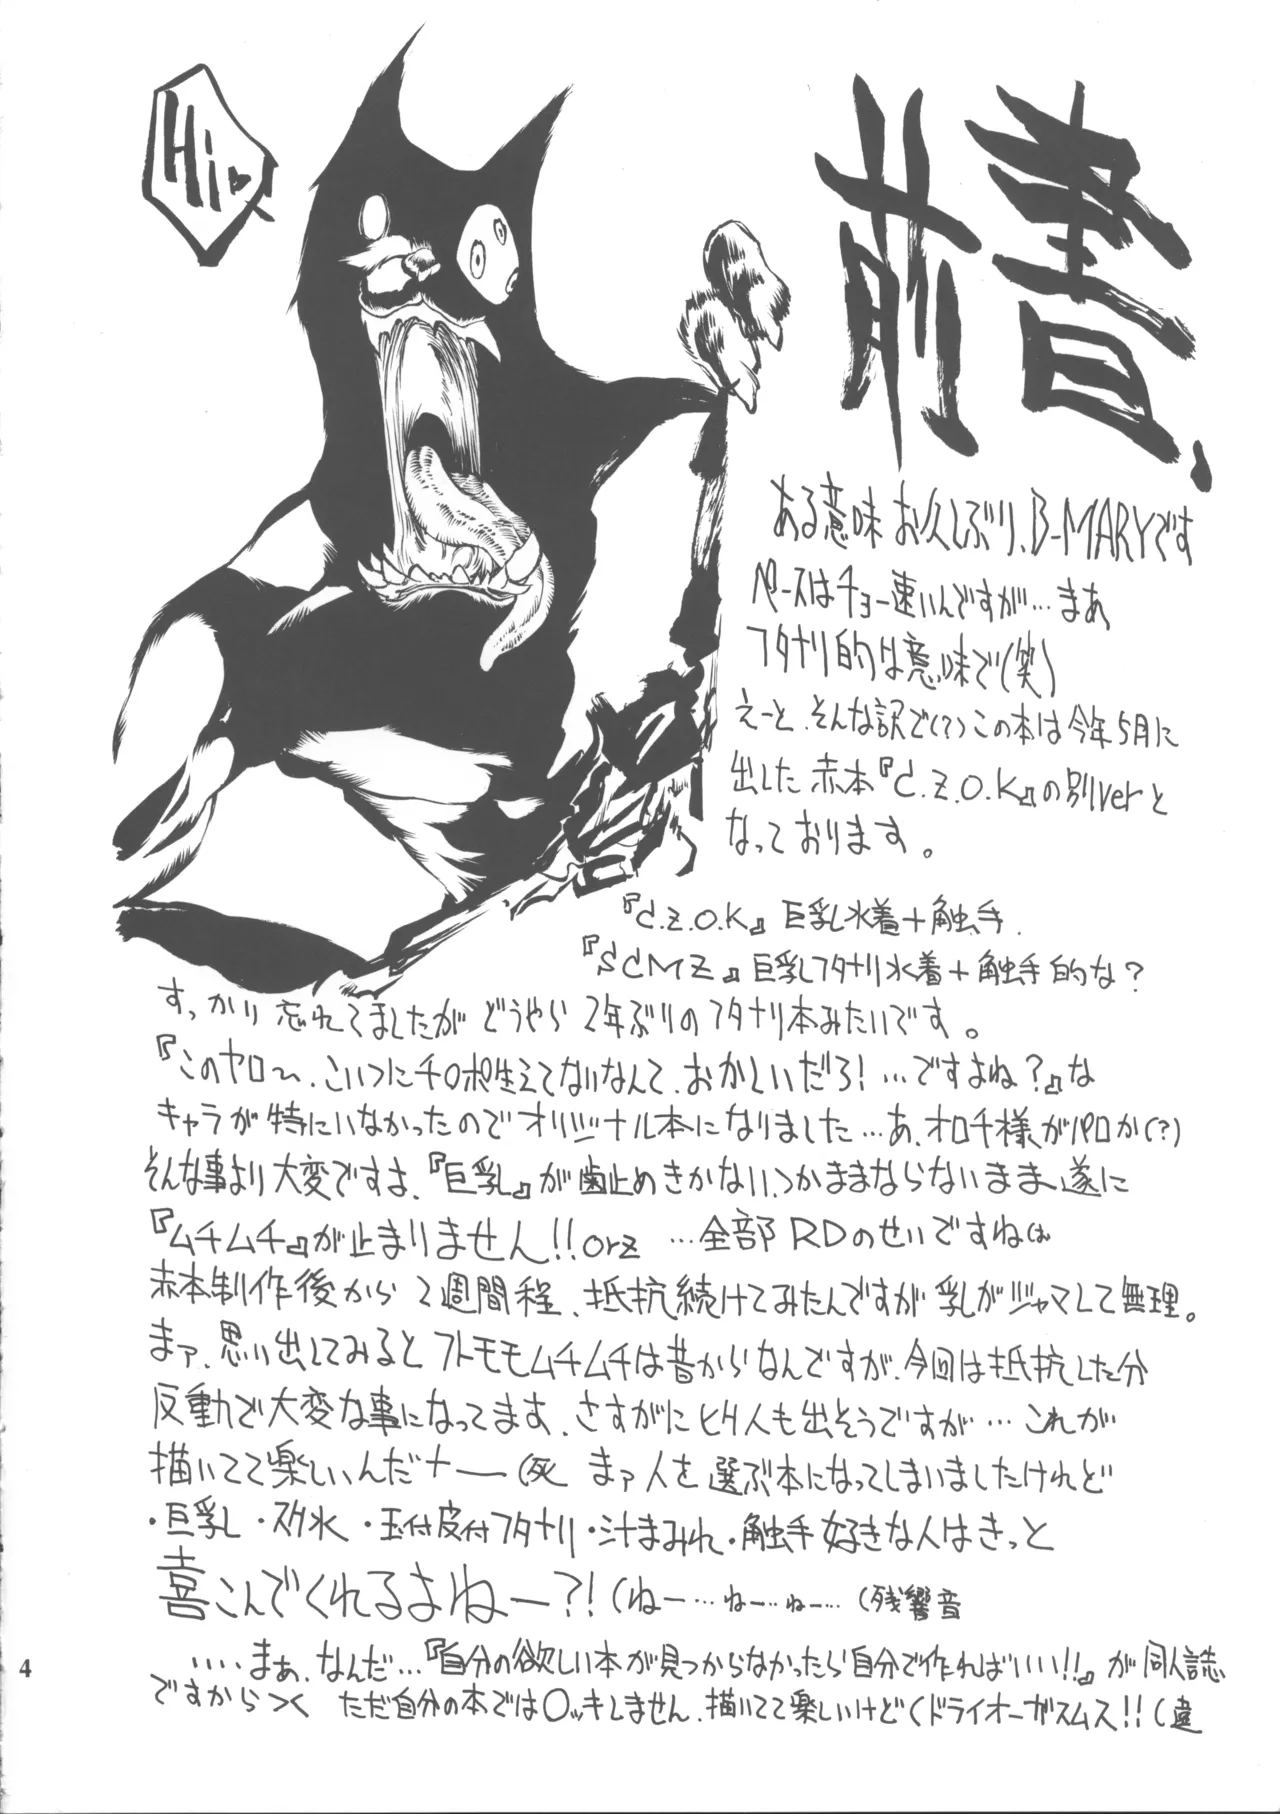 Hi♥
前書、
ある意味お久しぶり、B-MARYです
ペースはチョー速いんですが…まあ
フタナリ的な意味で(笑)
えーと、そんな訳で(?)この本は今年5月に
出した赤本『C.Z.O.K』の別verと
なっております。
『C.Z.O.K』巨乳水着+触手.
『SCMZ』巨乳フタナリ水着+触手的な?
すっかり忘れてましたがどうやら2年ぶりのフタナリ本みたいです。
『このヤロ〜、こいつにチ〇ポ生えてないなんて、おかしいだろ!…ですよね?』な
キャラが特にいなかったのでオリジナル本になりました…あ、オロチ様がパロか(?)
そんな事より大変ですよ、『巨乳』が歯止めきかない、つかままならないまま遂に
『ムチムチ』が止まりません!!orz …全部RDのせいですねは
赤本制作後から2週間程、抵抗続けてみたんですが乳がジャマして無理。
まァ、思い出してみるとフトモモムチムチは昔からなんですが、今回は抵抗した分
反動で大変な事になってます、さすがにヒク人も出そうですが…これが
描いてて楽しいんだナー(死 まァ人を選ぶ本になってしまいましたけれど
・巨乳・スク水・玉付皮付フタナリ・汁まみれ・触手好きな人はきっと
喜こんでくれるよねー?!(ねー…ねー…ねー…(残響音
‥‥まぁ、なんだ…『自分の欲しい本が見つからなかったら自分で作ればいい!!』が同人誌
ですからつく ただ自分の本では〇ッキしません、描いてて楽しいけどくドライオーガズムス!!(違
4